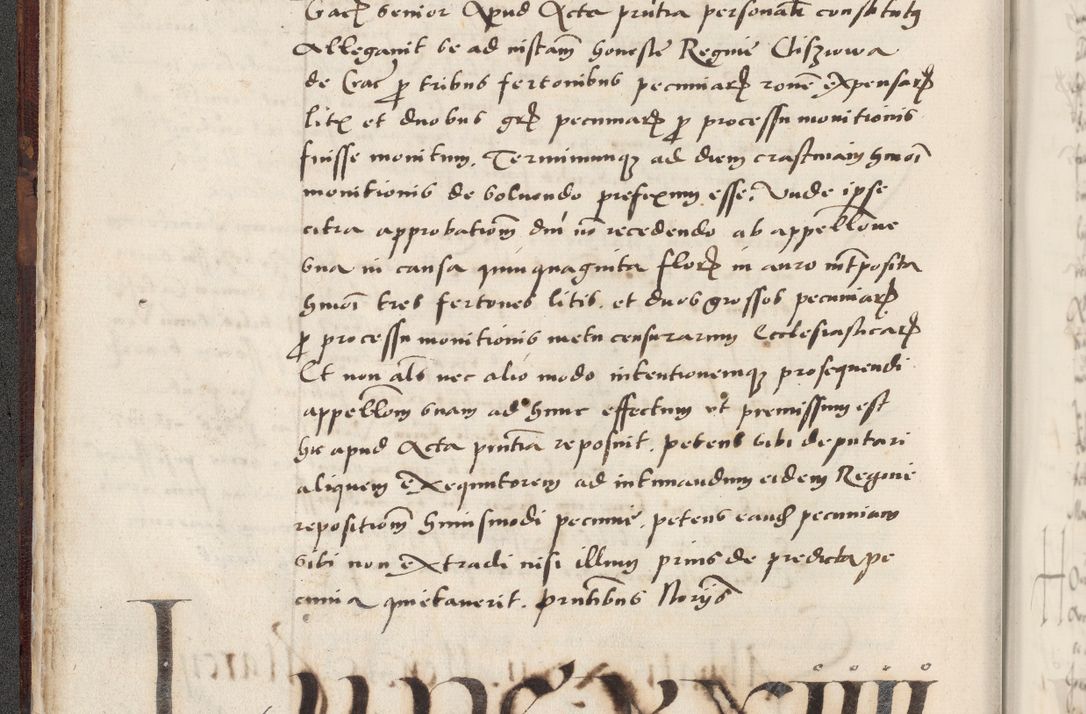 senior Apud Acta pñtia personalr constitutq
Allegavit se ad instañ honeste Regine Cliszowa
de Crac̃ p tribus fertonibus pecuniarꝝ roñe expensarꝝ
litꝫ et duobus grꝝ pecuniarꝝ p processu monitionis
fuisse monitum. Terminumqꝫ ad diem crastinam hmoi
monitionis de soluendo prefexum esse. Vnde ipse
citra approbationẽ dni nõ recedendo ab appellõne
sua in causa quinquaginta florꝝ in auro intposita
hmoi tres fertones litis et duos grossos pecuniarꝝ
p processu monitionis metu censurarum Ecclesiasticarꝝ
Et non als nec alio modo intentionemqꝫ prosequendi
appellõm suam ad hunc effectum ut premissum est
hic apud Acta pñtia reposuit. petens sibi deputari
aliquem Exequutorem ad intimandum eidem Regine
repositionẽ huiusmodi pecunie. petens eand pecuniam
sibi non extradi nisi illum prius de predicta pe
cunia quietauerit. pñtibus Norijs